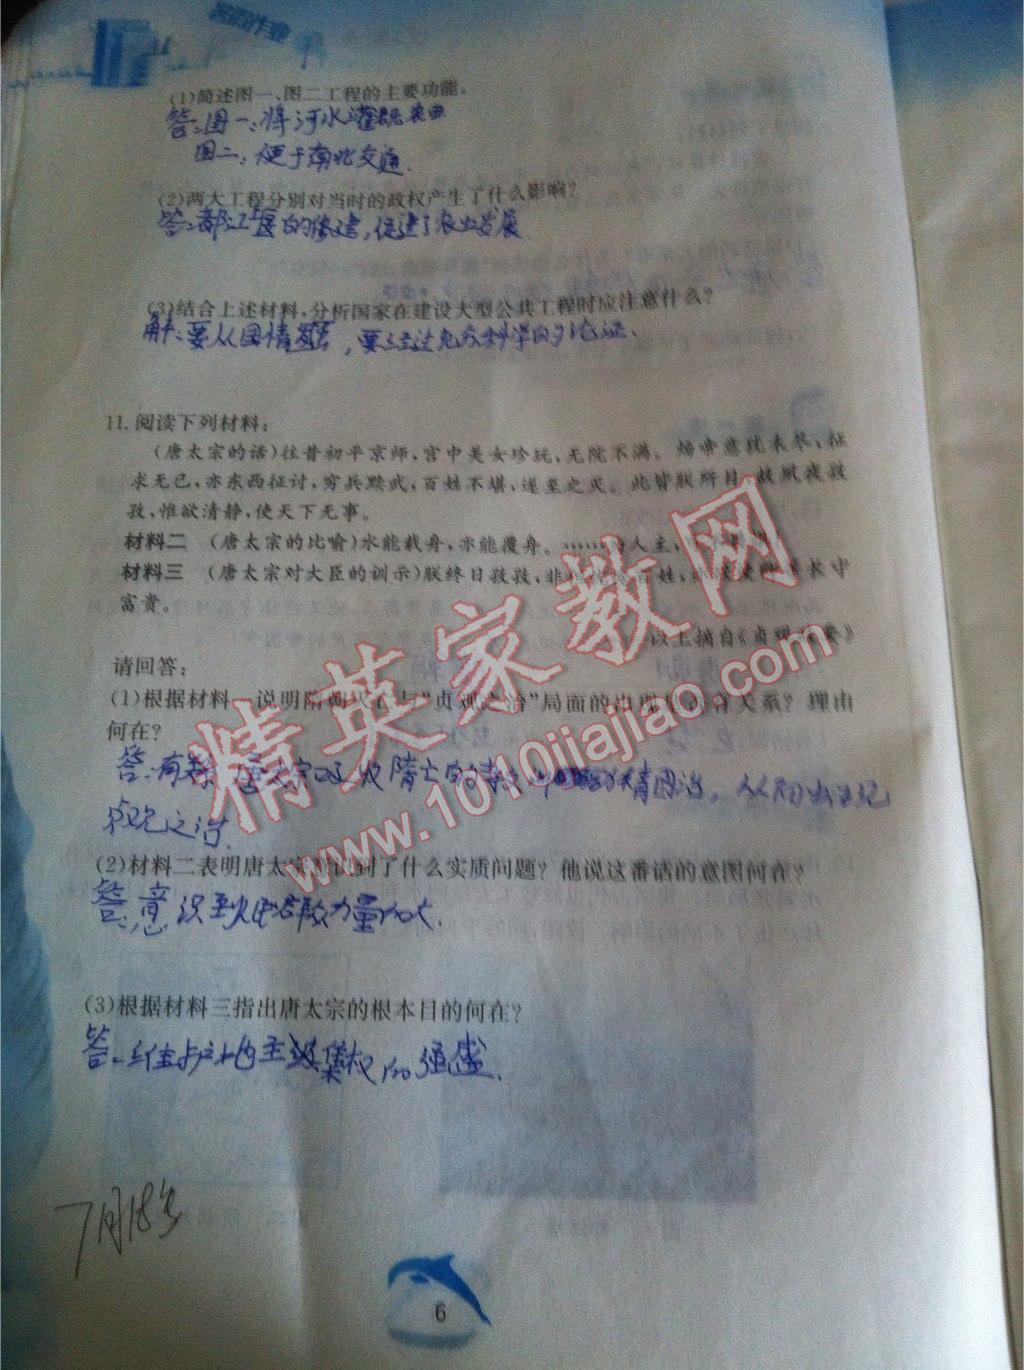 暑假作业
(1)简述图一、图二工程的主要功能。
答:图一:将河水灌溉农田
图二:便于南北交通.
(2)两大工程分别对当时的政权产生了什么影响?
答:都江堰的修建,促进了农业发展
(3)结合上述材料,分析国家在建设大型公共工程时应注意什么?
解:要从国情 ,要经过充分科学的讨论证.
11. 阅读下列材料:
(唐太宗的话)往昔初平京师,宫中美女珍玩,无院不满。炀帝意犹未尽,征
求无已,亦东西征讨,穷兵黩武,百姓不堪,遂至之灭。此皆朕所目 故夙夜孜
孜,惟欲清静,使天下无事。
材料二 (唐太宗的比喻)水能载舟,亦能覆舟。……为人主,
材料三 (唐太宗对大臣的训示)朕终日孜孜,非 百姓, 长守
富贵。
以上摘自《贞观 要》
请回答:
(1)根据材料一说明隋朝灭亡与“贞观之治”局面的出现是否有关系?理由
何在?
答:有 唐太宗吸收隋亡的 精图治,从而出现
贞观之治.
(2)材料二表明唐太宗意识到了什么实质问题?他说这番话的意图何在?
答:意识到 力量 大.
(3)根据材料三指出唐太宗的根本目的何在?
答:维护地主 集权的强盛.
7月18号
6
精英家教网
www.1010jiajiao.com